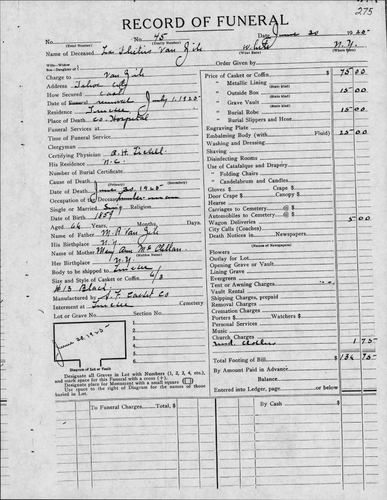 275
RECORD OF FUNERAL
No. 45 Date June 20 1925
(Total Number) (Yearly Number)
Name of Deceased Van Zile White N.Y.
(What Race)
Wife—Widow
Son—Daughter of
Order Given by
Charge to Van Zile
Price of Casket or Coffin $ 75.00
Address Tahoe City
" Metallic Lining
(State kind)
How Secured cash
" Outside Box 15.00
(State kind)
removed July 1, 1925
Residence Truckee
" Grave Vault
(State kind)
Place of Death Co. Hospital
" Burial Robe 15.00
(State kind)
Funeral Services at
" Burial Slippers and Hose
Time of Funeral Service
Engraving Plate
Clergyman
Embalming Body (with Fluid) 25.00
Certifying Physician A.H.
Washing and Dressing
His Residence N.C.
Shaving
Number of Burial Certificate
Disinfecting Rooms
Cause of Death
(Primary) (Secondary)
Use of Catafalque and Drapery
" Folding Chairs
Date of Death June 20, 1925
" Candelabrum and Candles
Occupation of the Deceased
Gloves $ Crape $
Single or Married Sing Religion
Door Crape $ Canopy $
Date of Birth 1859
Hearse
Carriages to Cemetery @ $
Aged 66 Years, Months, Days.
Automobiles to Cemetery @ $
Name of Father M. R. Van Zile
Wagon Deliveries 5.00
His Birthplace N.Y.
City Calls (Coaches)
Name of Mother Mary Ann McClellan
Death Notices in Newspapers
(Names of Newspapers)
Her Birthplace N.Y.
Flowers
Body to be shipped to Truckee
Outlay for Lot
Size and Style of Casket or Coffin 6/3
Opening Grave or Vault
#15 Black
Lining Grave
Evergreen
Manufactured by S.F. Casket Co
Tent or Awning Charges
Vault Rental
Interment at Truckee Cemetery
Shipping Charges, prepaid
Lot or Grave No. Section No.
Removal Charges
Cremation Charges
June 22, 1925
Porters $ Watchers $
1
2
3
4
5
6
Personal Services
Music
Church Charges
Und. Clothes 1.75
Diagram of Lot or Vault
Total Footing of Bill $ 136 75
Designate all Graves in Lot with Numbers (1, 2, 3, 4, etc.),
and mark space for this Funeral with a cross (+).
By Amount Paid in Advance
Designate place for Monument with a small square (□)
Balance
Use space to the right of Diagram for the names of those
buried in Lot.
Entered into Ledger, page or below $
To Funeral Charges, Total, $
By Cash $